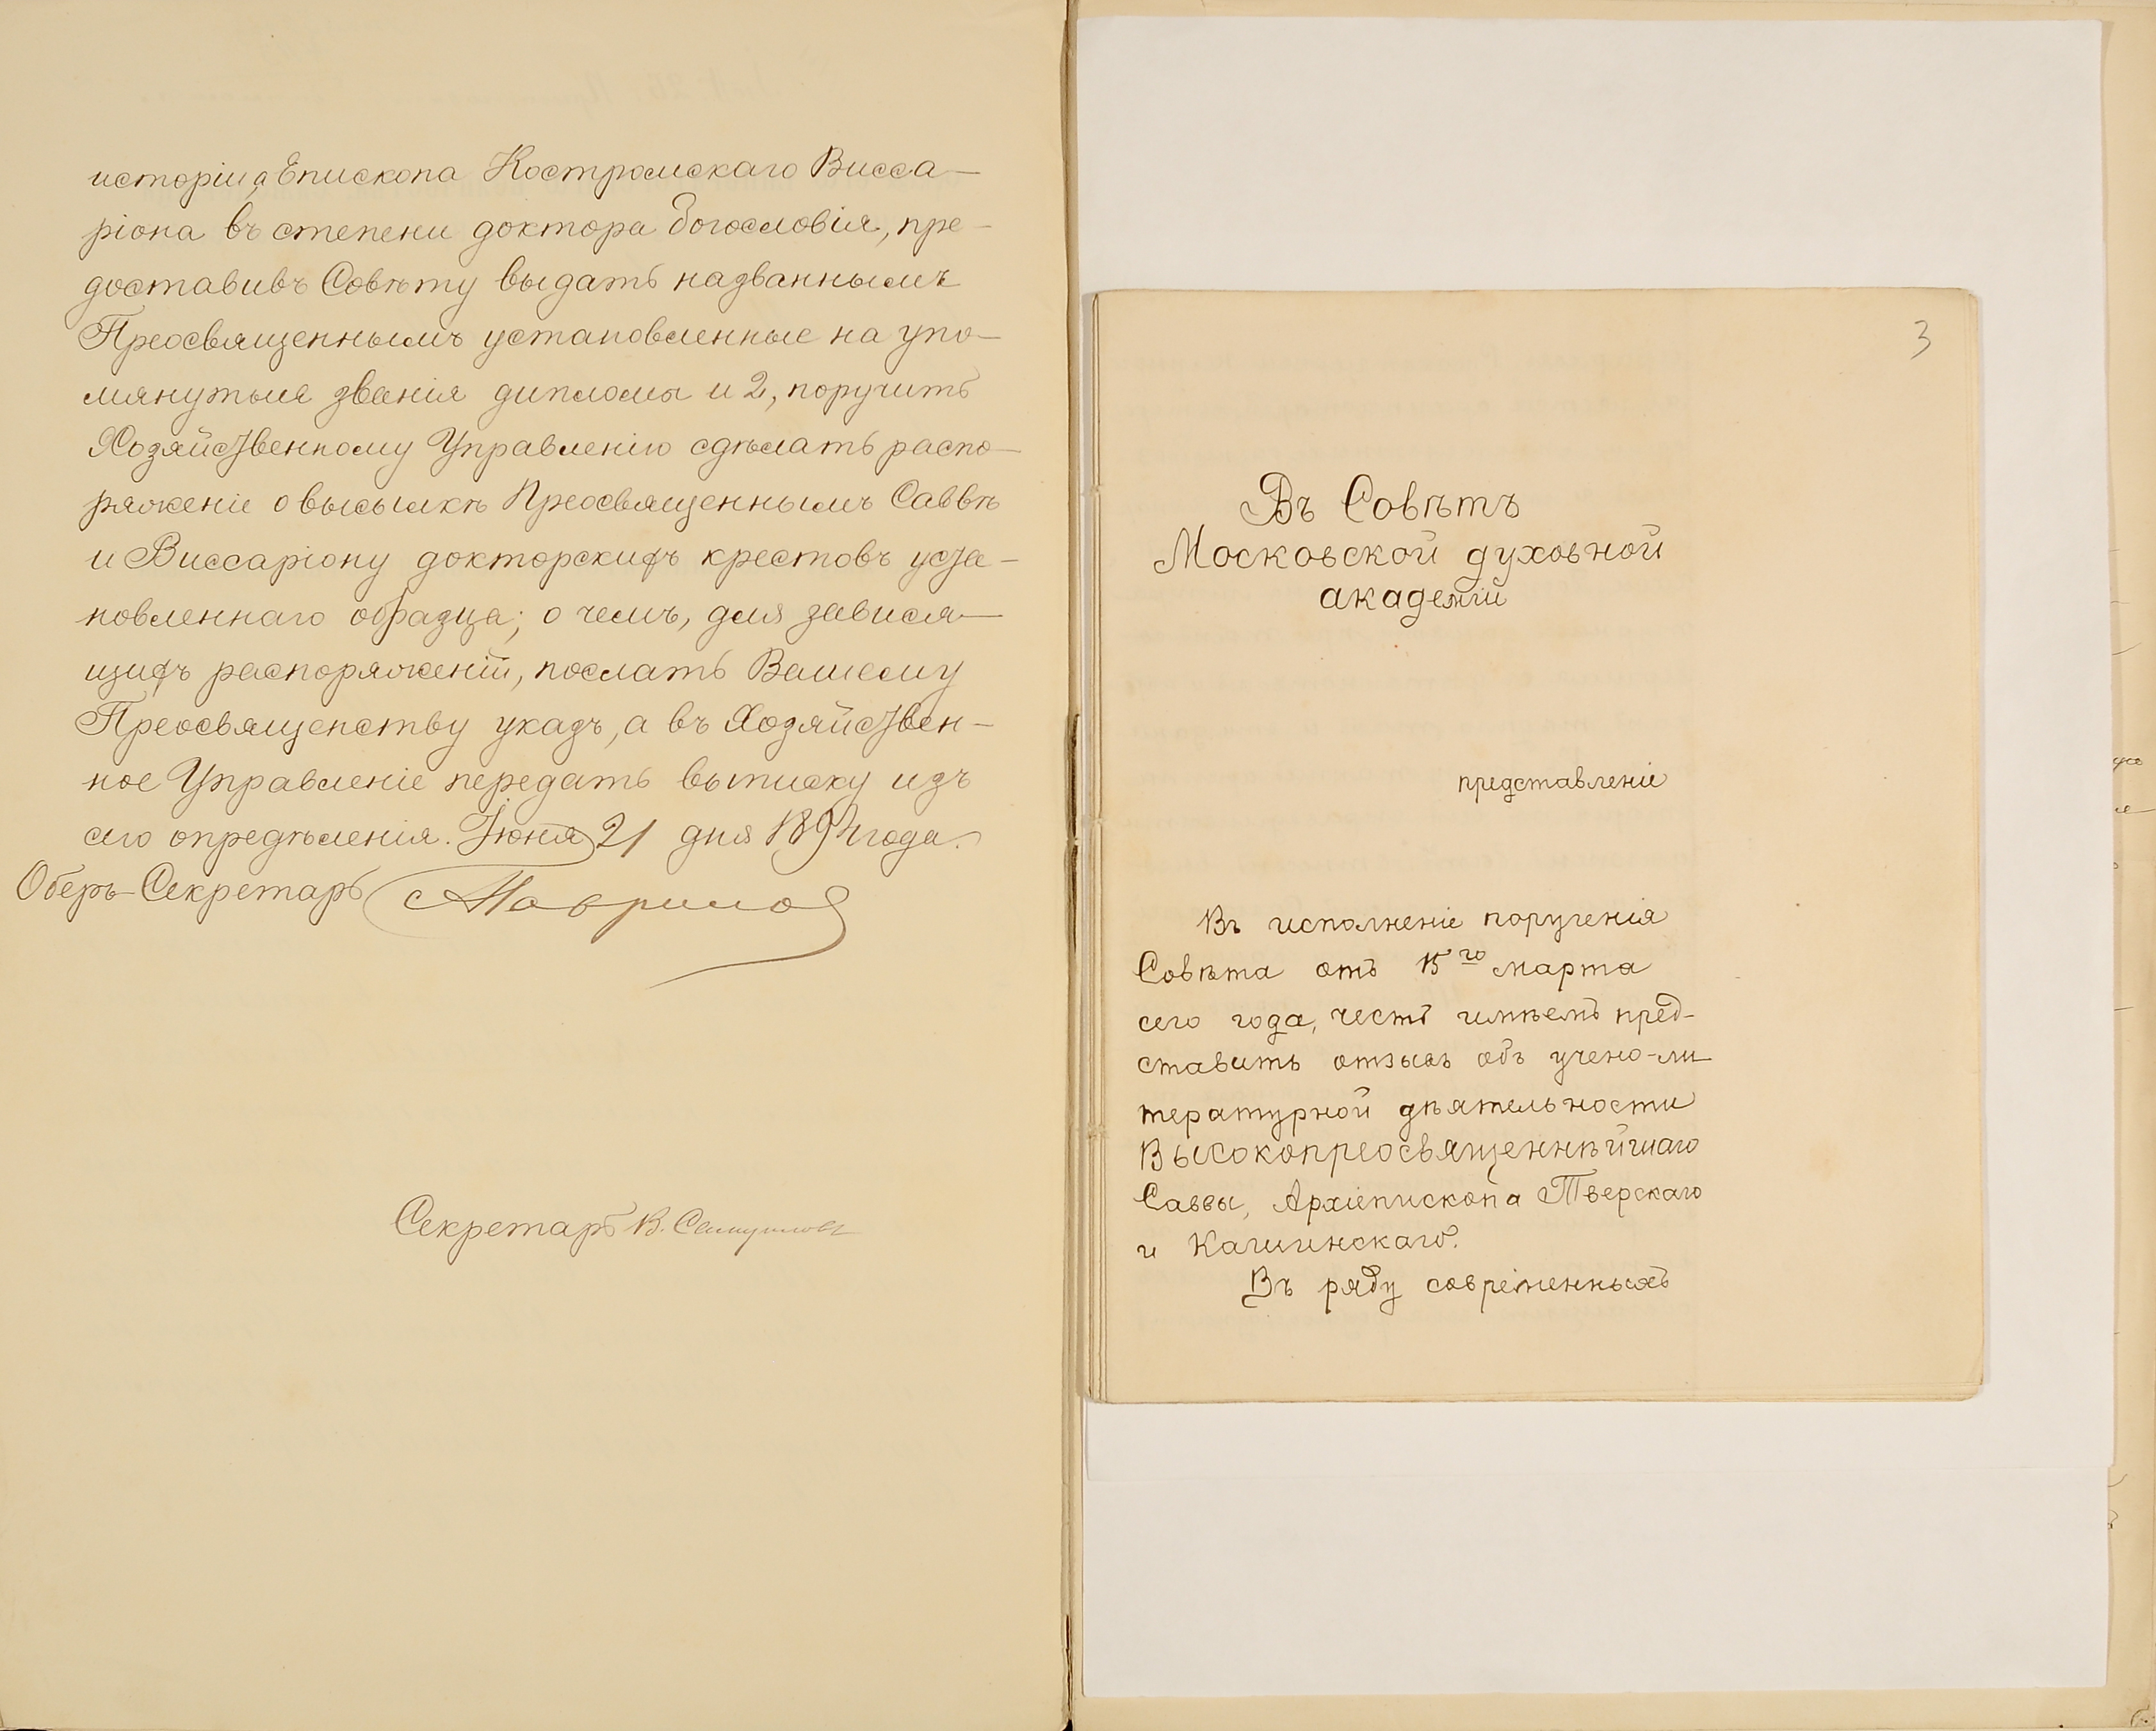 исторіи, а Епископа Костромскаго Висса-
ріона въ степени доктора богословія, пре-
доставивъ Совѣту выдать названнымъ
Преосвященнымъ установленные на упо-
мянутыя званія дипломы и 2, поручить
Хозяйственному Управленію сдѣлать распо-
ряженіе о высылкѣ Преосвященнымъ Саввѣ
и Виссаріону докторскихъ крестовъ уста-
новленнаго образца; о чемъ, для зависа-
щихъ распоряженій, послать Вашему
Преосвященству указъ, а въ Хозяйствен-
ное Управленіе передать выписку изъ
сего опредѣленія. Іюня 21 дня 1894 года.
Оберъ-Секретарь
Секретарь В.
3
Въ Совѣтъ
Московской духовной
академіи
представленіе
Въ исполненіе порученія
Совѣта отъ 15го марта
сего года, честь имѣемъ пред-
ставить отзывъ объ учено-ли
тературной дѣятельности
Высокопреосвященнѣйшаго
Саввы, Архіепископа Тверскаго
и Кашинскаго.
Въ ряду современныхъ